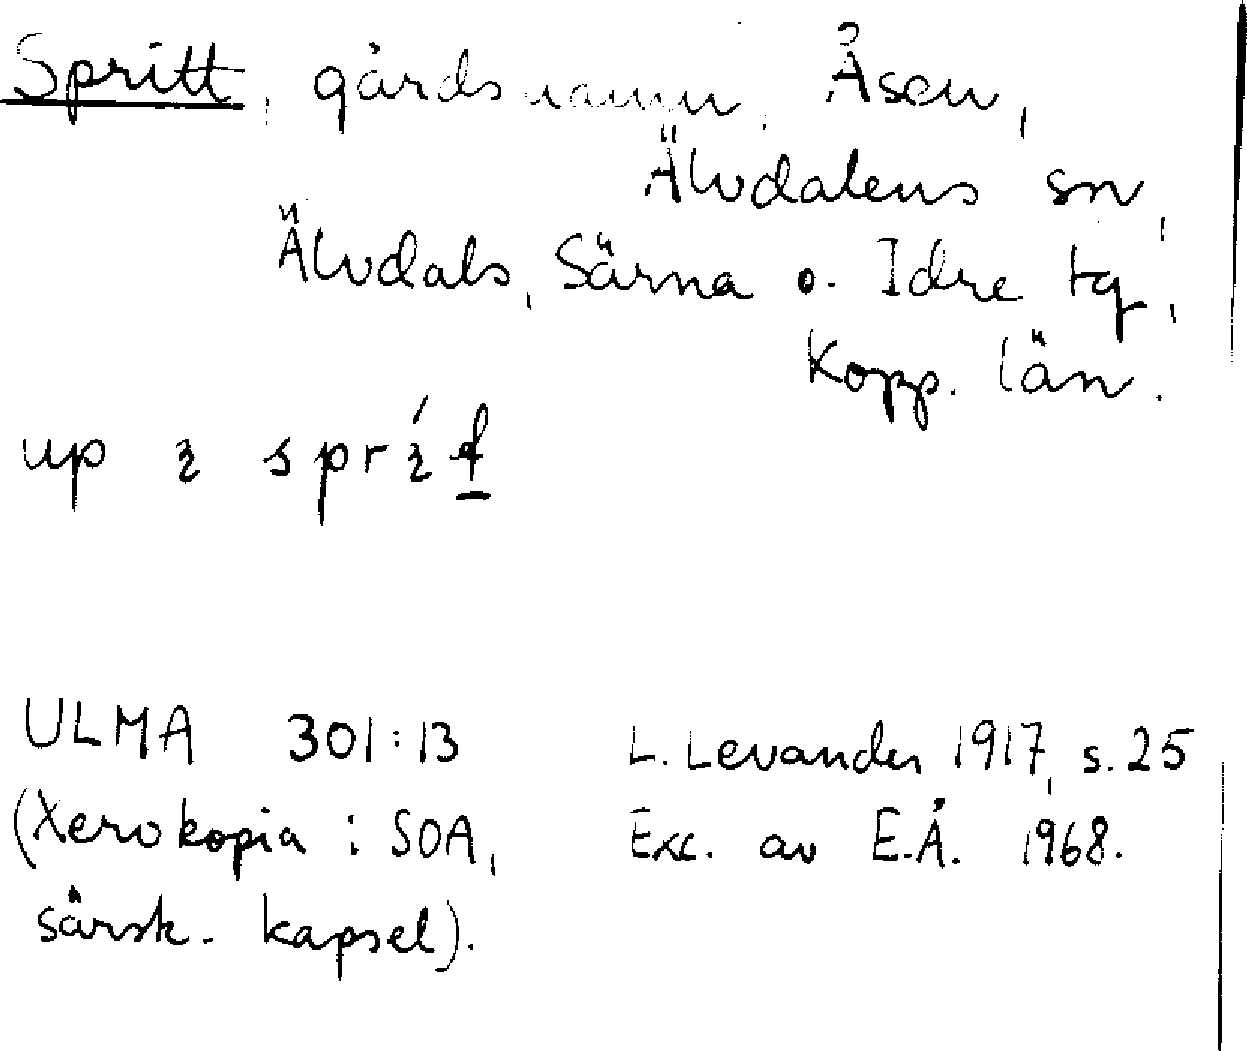 Spritt, gårdsnamn, Åsen,
Älvdalens sn,
Älvdals, Särna o. Idre tg,
Kopp. län.
up
ULMA 301:13 L. Levander 1917, s. 25
(Xerokopia i SOA, Exc. av E.Å. 1968.
särsk. kapsel).